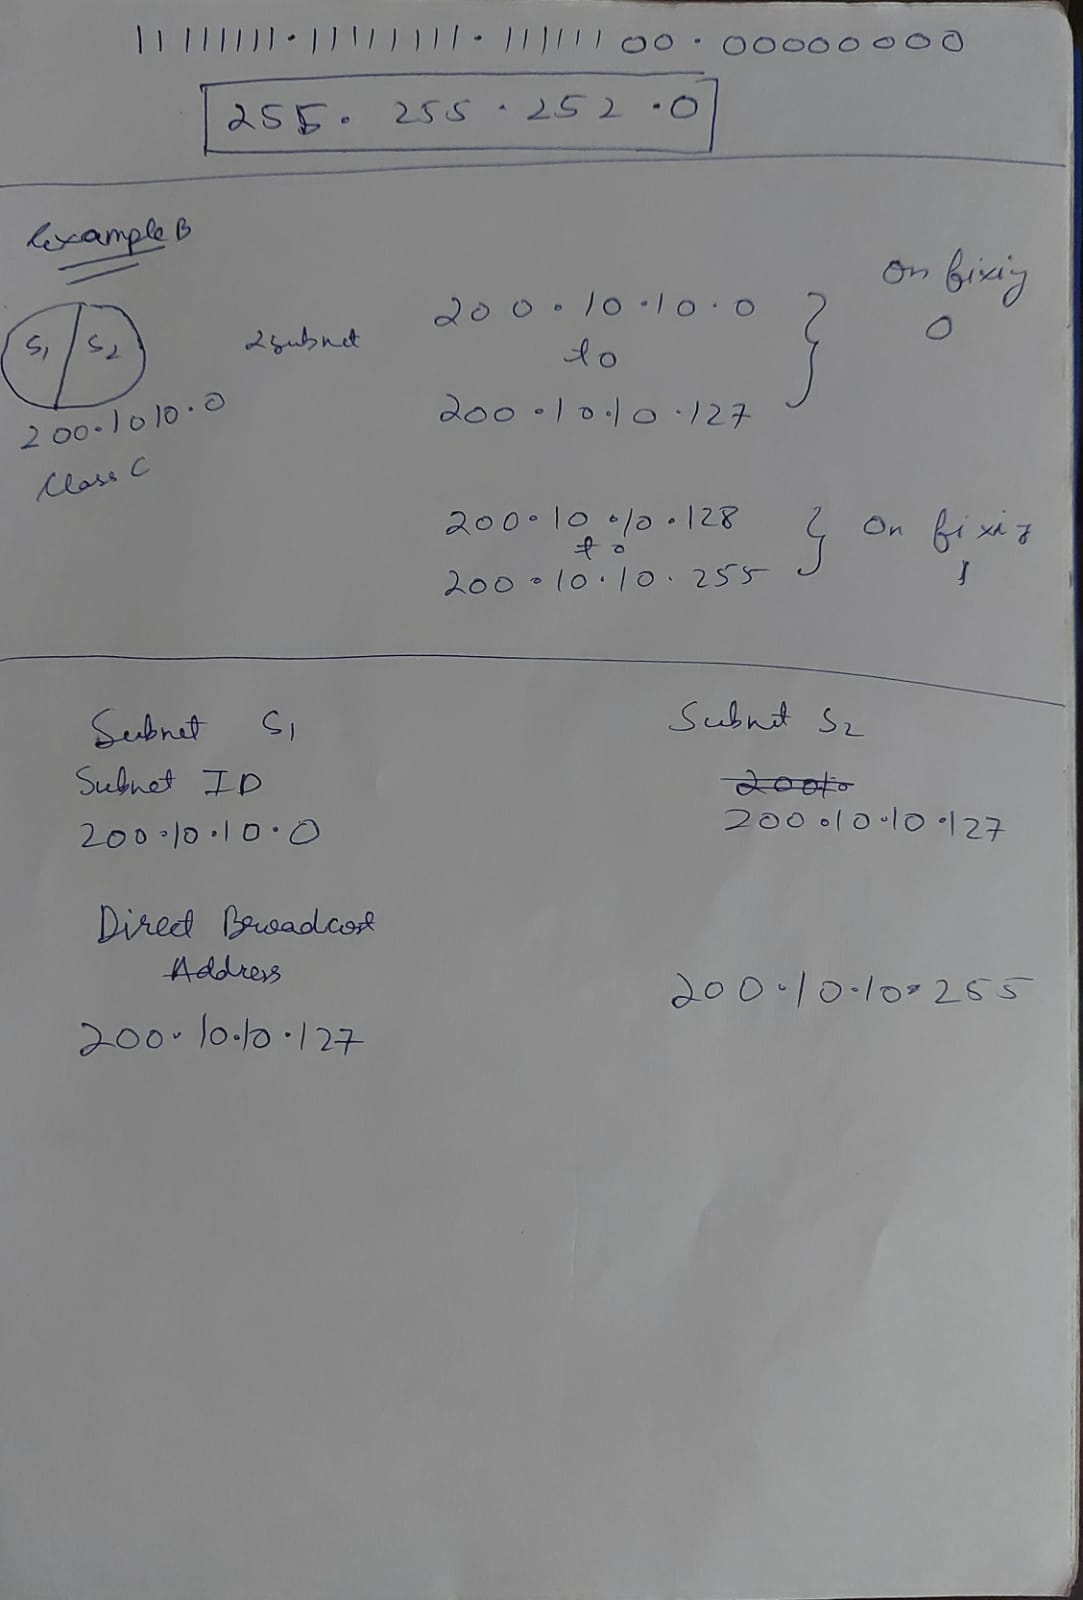 11111111.11111111.11111100.00000000
255.255.252.0
Example B
S1 S2
2 subnet
200.1010.0
Class C
200.10.10.0
to
200.10.10.127
On fixig
0
200.10.10.128
to
200.10.10.255
On fixig
1
Subnet S1
Subnet ID
200.10.10.0
Direct Broadcast
Address
200.10.10.127
Subnet S2
200.10.10.127
200.10.10.255